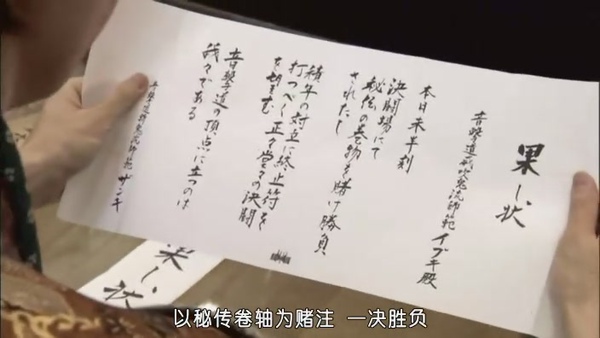 果し状
音撃道威吹鬼流師範 イブキ殿
本日未午刻
決闘場にて
秘伝の巻物を賭け勝負
されたし
積年の対立に終止符を
打つべく正々堂々の決闘
を望む
音撃道の頂点に立つのは
我々である
音撃道斬鬼流師範 ザンキ
果し状
以秘传卷轴为赌注 一决胜负